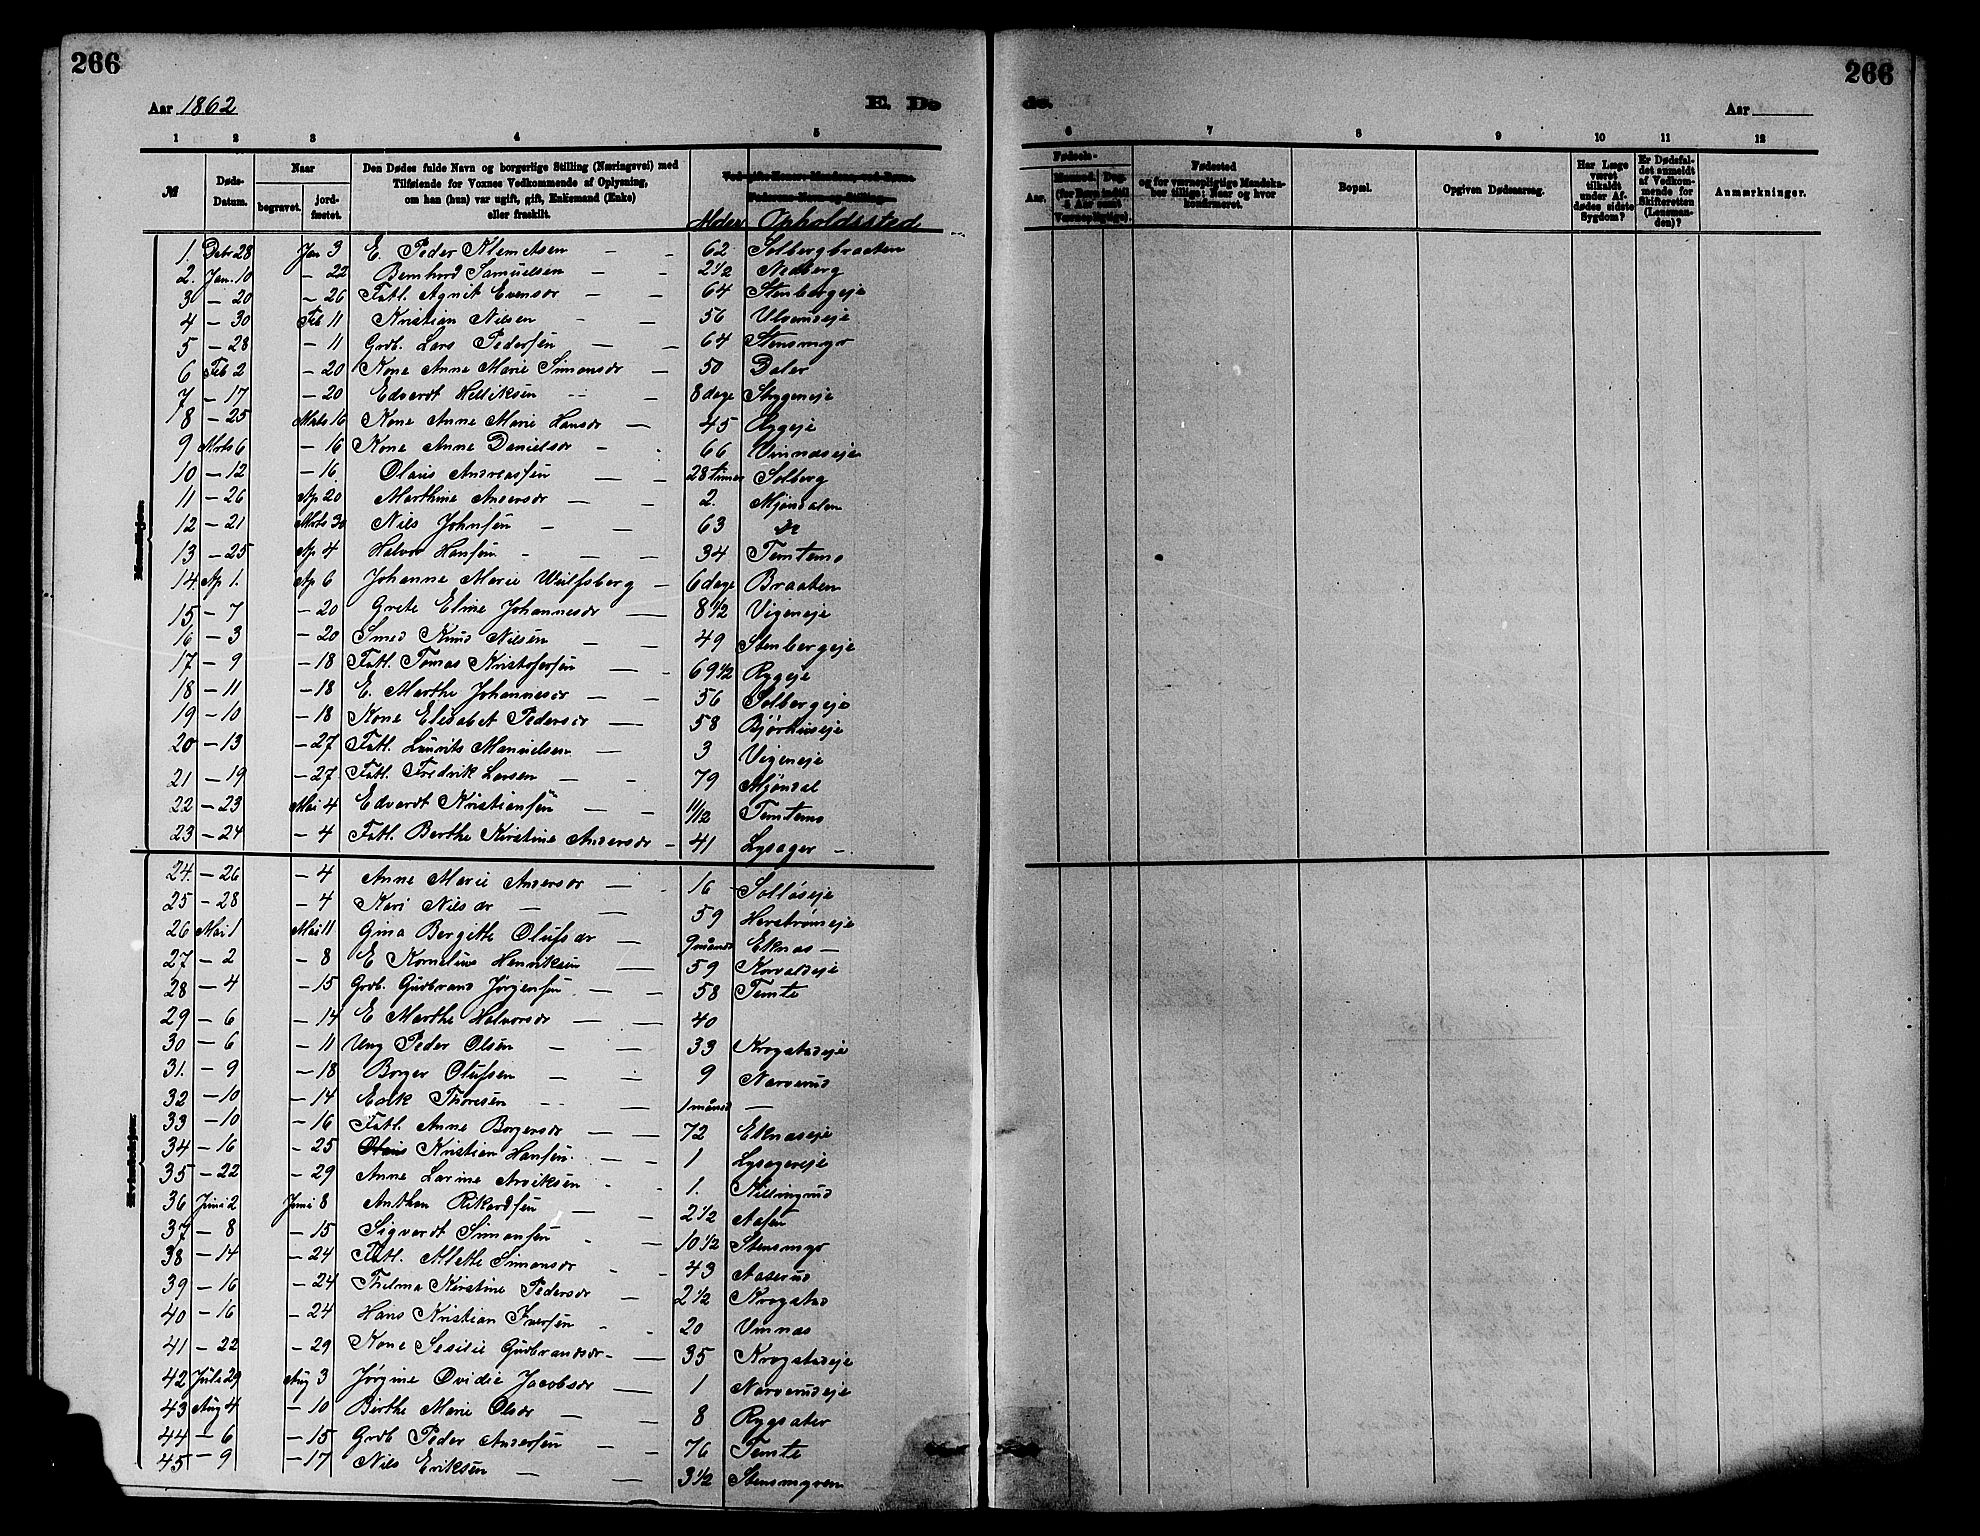 266
266
Aar 1862
E. Dø
de.
Aar
1 2 3 4 5
6 7 8 9 10 11 12
№
Døds-Datum.
Naar
begravet.
jord-fæstet.
Den Dødes fulde Navn og borgerlige Stilling (Næringsvei) med
Tilføiende for Voxnes Vedkommende af Oplysning,
om han (hun) var ugift, gift, Enkemand (Enke)
eller fraskilt.
Alder
Opholdssted
Fødsels-
Aar.
Maaned.
Dag.
(for Børn indtil
5 Aar samt
Værnepligtige).
Fødested
og for værnepligtige Mandska-
ber tillige: Naar og hvor
konfirmeret.
Bopæl.
Opgiven Dødsaarsag.
Har Læge
været
tilkaldt
under Af-
dødes sidste
Sygdom?
Er Dødsfal-
det anmeldt
af Vedkom-
mende for
Skifteretten
(Lensman-
den)?
Anmærkninger.
1. Debr 28 Jan 3 E. Peder Klemetsen 62 Solbergbraaten
2. Jan. 10 - 22 Bernhard Samuelsen 2 1/2 Nedberg
3 - 20 - 26 Fatl. Agnit Evensdr 64 Stenbergeje
4 - 30 Feb 11 Kristian Nilsen 56 Ulverudeje
5 - 28 - 11 Grdb. Lars Pedersen 64 Stensmyr
6 Feb 2 - 20 Kone Anne Marie Simonsdr 50 Daler
7 - 17 - 20 Edvardt Hellíksen 8 dage Strygeneje
8 - 25 Mrts 16 Kone Anne Marie Hansdr 45 Rygeje
9 Mrts 6 - 16 Kone Anne Danielsdr 66 Vinnæseje
10 - 12 - 16. Olaus Andreassen 28 timer Solberg
11 - 26 Ap 20 Marthine Andersdr 2. Mjøndalen
12 - 21 Mrts 30 Nils Johnsen 63
13 - 25 Ap 4 Halvor Hansen 34 Temtemo
14. Ap 1. Ap 6 Johanne Marie Wulfsberg 6 dage Braaten
15 - 7 - 20 Grete Eline Johannesdr 8 1/2 Vigeneje
16 - 3 - 20 Smed Knud Nilsen 49 Stenbergeje
17 - 9 - 18 Fatl. Tomas Kristofersen 69 1/2 Rygeje
18 - 11 - 18 E. Marthe Johannesdr 56 Solbergeje
19 - 10 - 18 Kone Elisabet Pedersdr 58 Bjørkuseje
20 - 13 - 27 Fatl. Laurits Manuelsen 3 Vigeneje
21 - 19 - 27 Fatl. Fredrik Larsen 79 Mjøndal
22 - 23 Mai 4 Edvardt Kristiansen 11/12 Temtemo
23 - 24 - 4 Fatl. Berthe Kirstine Andersdr 41 Lysager
24. - 26 - 4 Anne Marie Andersdr 16 Solløseje
25 - 28 - 4 Kari Nilsdr 59 Herstrømeje
26 Mai 1 Mai 11 Gina Bergitte Olufsdr 9 månd Eknæs
27 - 2 - 8 E Kornelius Henriksen 59 Korvaldeje
28 - 4 - 15 Grdb. Gudbrand Jørgensen 58 Temte
29 - 6 - 14 E Marthe Halvorsdr 40
30 - 6 - 11 Ung Peder Olsen 33 Krogstadeje
31. - 9 - 18 Borger Olufsen 9 Narverud
32 - 10 - 14 Edik Thoresen 1 månd —
33 - 10 - 16 Fatl. Anne Borgersdr 72 Eknæseje
34 - 16 - 25 Kristian Hansen 1 Lysagereje
35 - 22 - 29 Anne Larine Arviksen 1. Killingrud
36 Juni 2 Juni 8 Anthon Rikardsen 2 1/2 Aasen
37 - 8 - 15 Sigvardt Simonsen 10 1/2 Stensmyr
38 - 14 - 24 Fatl. Alette Simonsdr 43 Aaserud
39 - 16 - 24 Thilma Kirstine Pedersdr 2 1/2 Krogstad
40 - 16 - 24 Hans Kristian Iversen 20 Vinnæs
41 - 22 - 29 Kone Sesilie Gudbrandsdr 35 Krogstadeje
42 Juli 29 Aug 3 Jørgine Ovidie Jacobsdr 1 Narverudeje
43 Aug 4 - 10 Birthe Marie Olsdr 8 Rygsæter
44 - 6 - 15 Grdb Peder Andersen 76 Temte
45 - 9 - 17 Nils Eriksen 3 1/2 Stensmyren